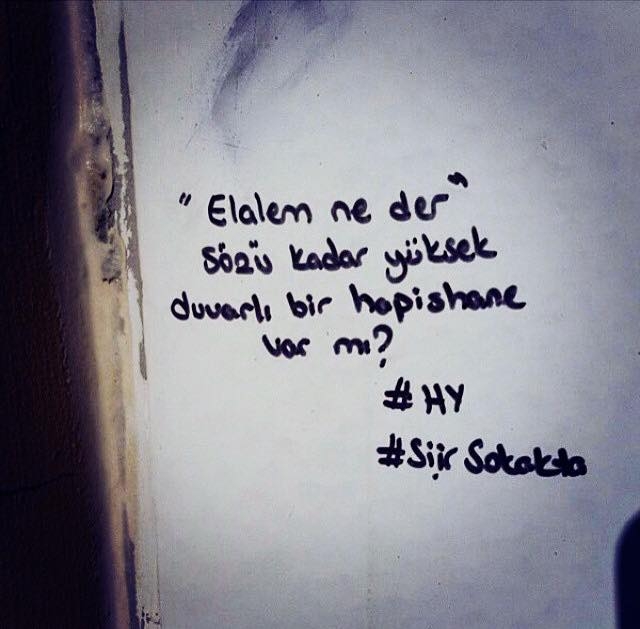 "Elalem ne der"
sözü kadar yüksek
duvarlı bir hapishane
var mı?
#HY
#Şiir Sokakta